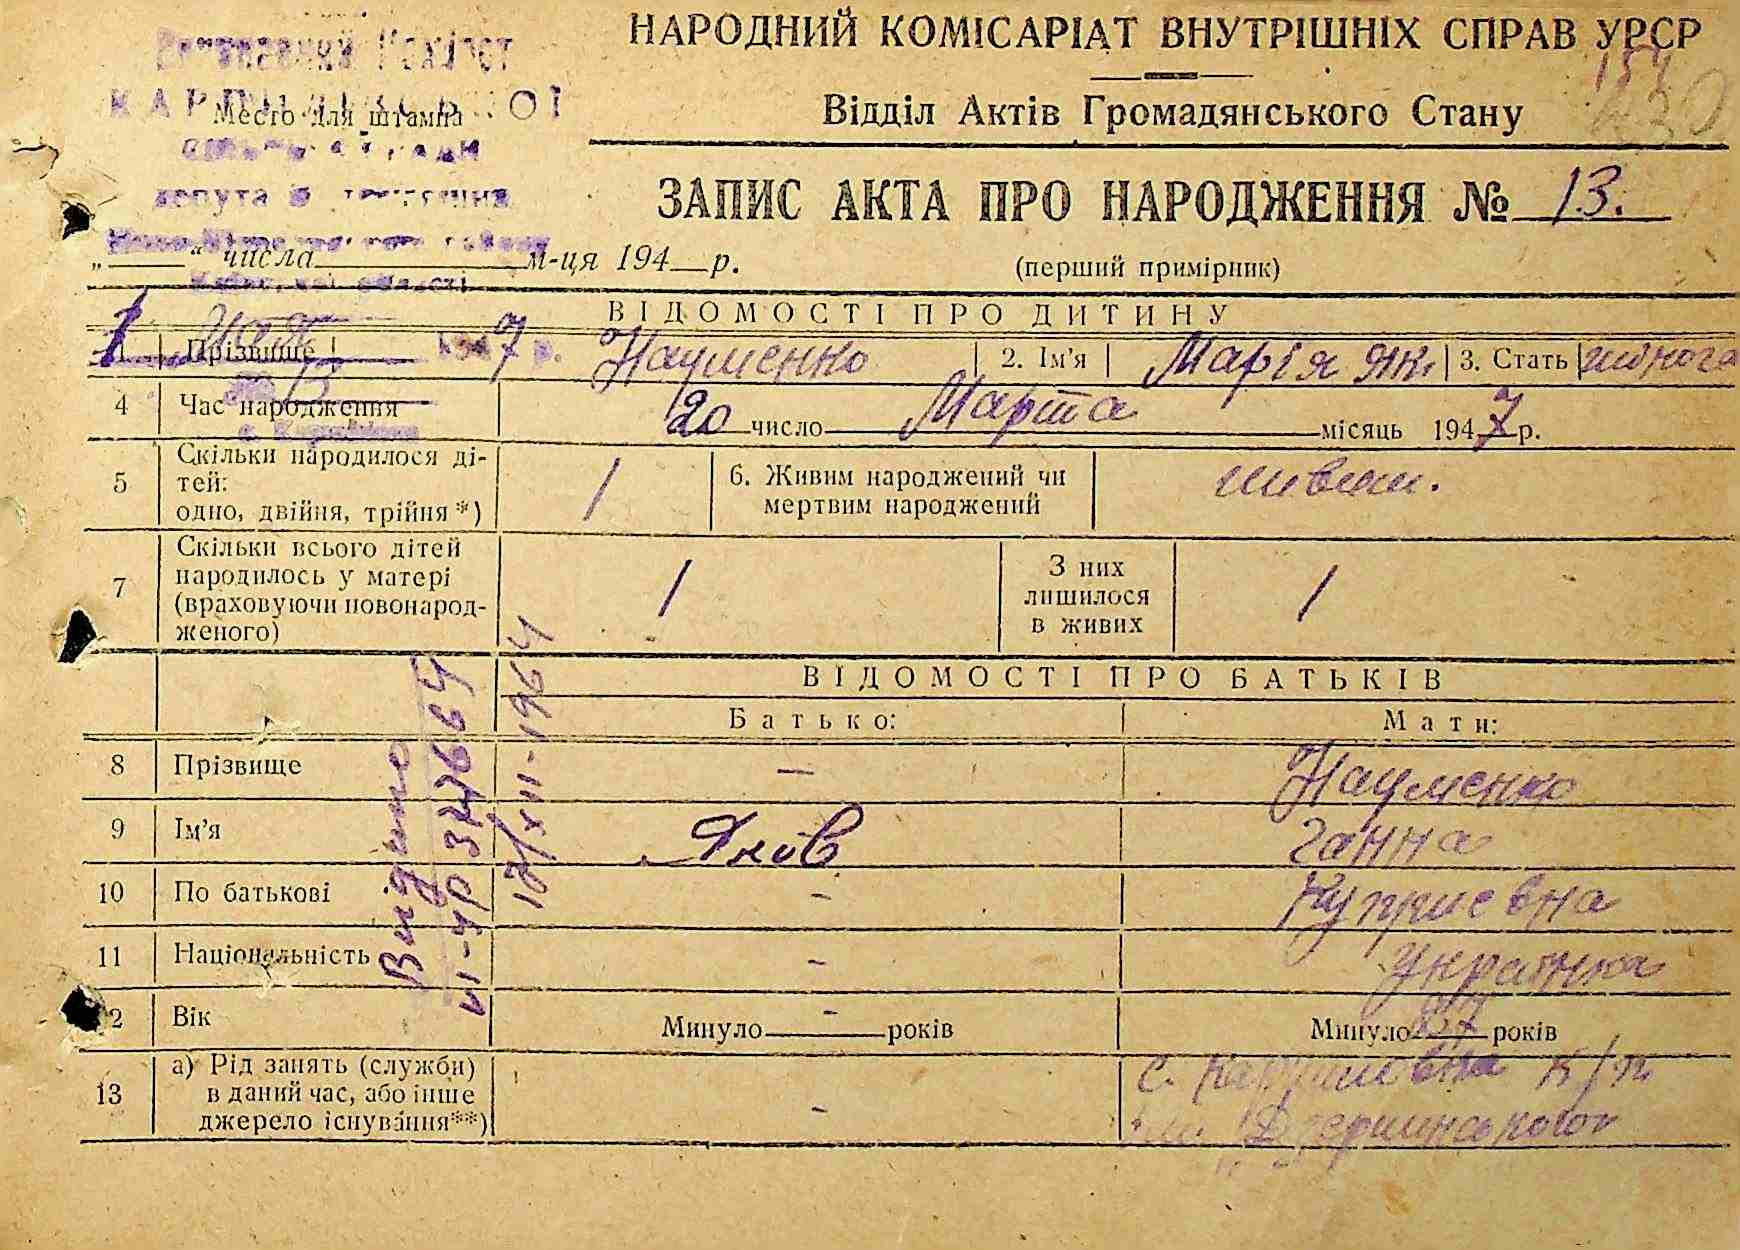 НАРОДНИЙ КОМІСАРІАТ ВНУТРІШНІХ СПРАВ УРСР
Відділ Актів Громадянського Стану
Место для штампа
депутатів
ЗАПИС АКТА ПРО НАРОДЖЕННЯ № 13.
„ “ числа м-ця 194 р.
(перший примірник)
ВІДОМОСТІ ПРО ДИТИНУ
1 Прізвище Науменко 2. Ім'я Марія Як. 3. Стать жіноча
4 Час народження 20 число Марта місяць 1947 р.
5 Скільки народилося ді-
тей:
одно, двійня, трійня*) 1
6. Живим народжений чи
мертвим народжений живим.
7 Скільки всього дітей
народилось у матері
(враховуючи новонарод-
женого) 1
З них
лишилося
в живих 1
ВІДОМОСТІ ПРО БАТЬКІВ
Батько: Мати:
8 Прізвище — Науменко
9 Ім'я Яків Ганна
10 По батькові - Куприєвна
11 Національність - Українка
12 Вік Минуло - років Минуло 37 років
13 а) Рід занять (служби)
в даний час, або інше
джерело існування**) -
с. Карпиловка К/г
ім. Дзержинського
Видано
12/XII-1964